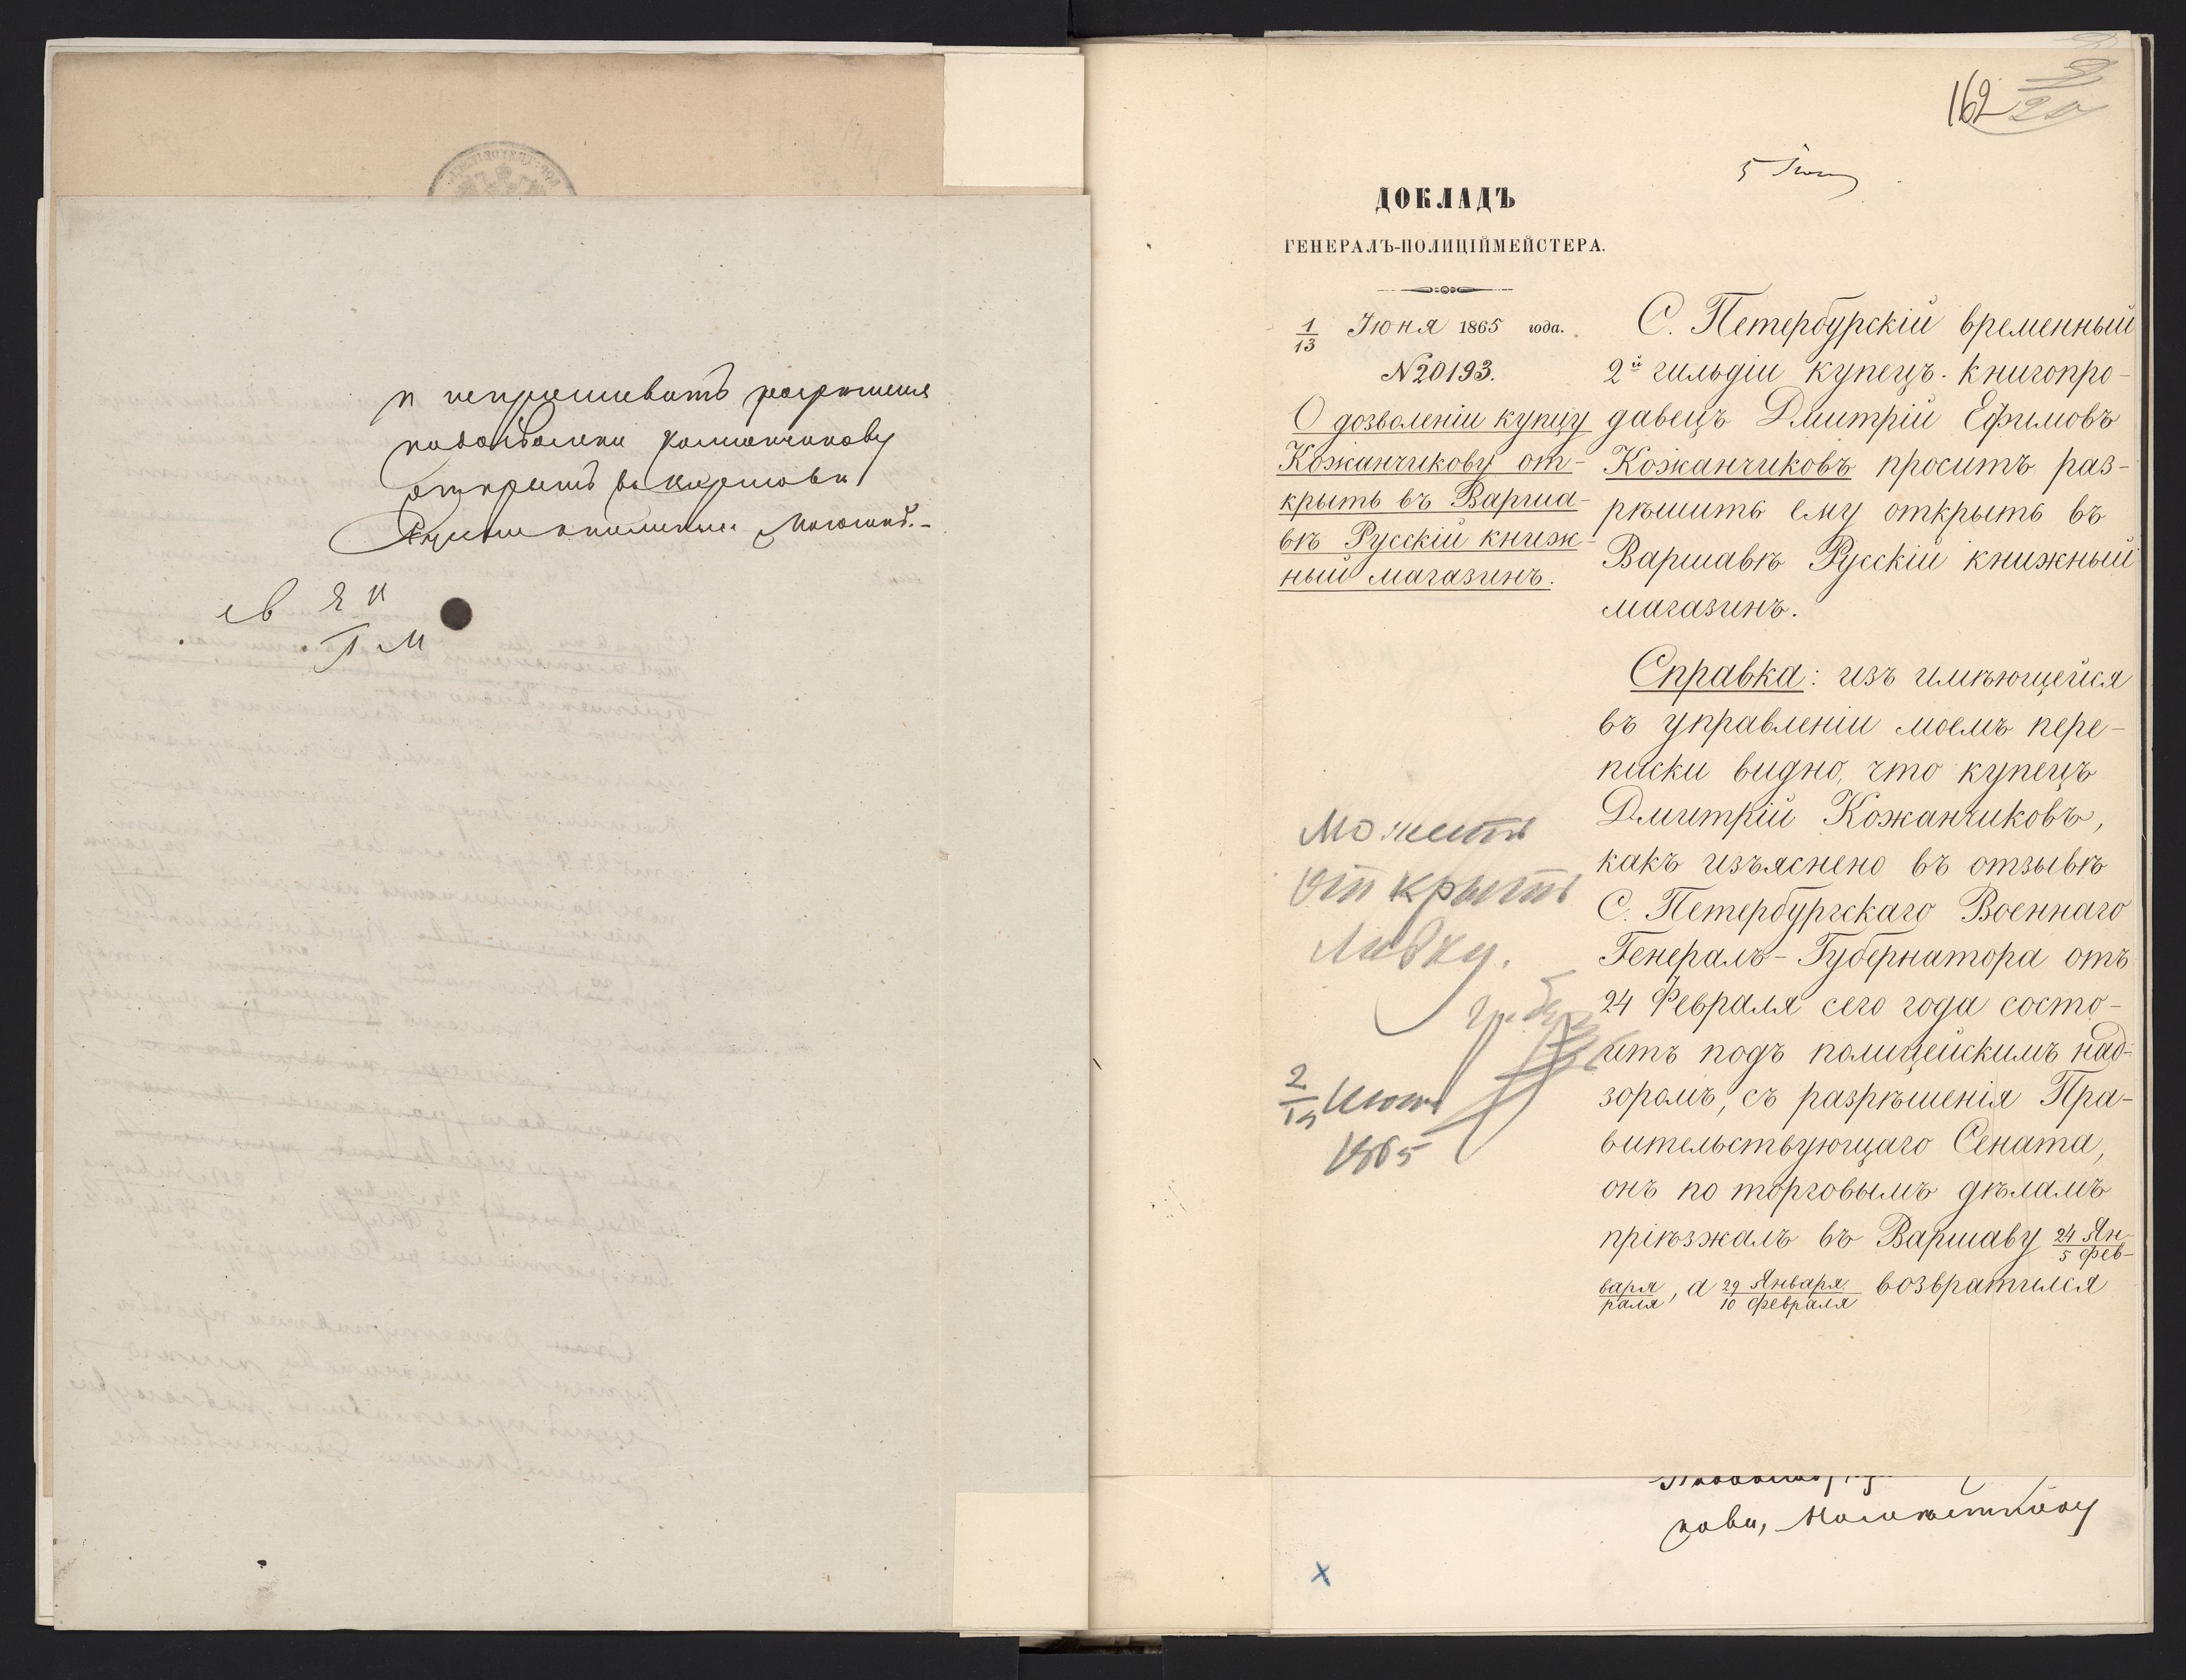 и испрашивать разрешения
Кожанчикову
открыть въ Варшаве
162
5 Іюня
ДОКЛАДЪ
ГЕНЕРАЛЪ-ПОЛИЦІЙМЕЙСТЕРА.
1/13 Іюня 1865 года.
№ 20193.
О дозволеніи купцу
Кожанчикову от-
крыть въ Варша-
вѣ Русскій книж-
ный магазинъ.
С. Петербурскій временный
2й гильдіи купецъ. книгопро-
давецъ Дмитрій Ефимовъ
Кожанчиковъ проситъ раз-
рѣшить ему открыть въ
Варшавѣ Русскій книжный
магазинъ.
Справка: изъ имѣющейся
въ управленіи моемъ пере-
писки видно, что купецъ
Дмитрій Кожанчиковъ,
какъ изъяснено въ отзывѣ
С. Петербургскаго Военнаго
Генералъ-Губернатора отъ
24 Февраля сего года состо-
итъ подъ полицейскимъ над-
зоромъ, съ разрѣшенія Пра-
вительствующаго Сената,
онъ по торговымъ дѣламъ
пріѣзжалъ въ Варшаву 24 Ян-/5 Фев-
варя/раля, а 29 Января/10 Февраля возвратился
Можетъ
открыть
Лавку.
Гр. Бергъ
2/14 Июня
1865
x